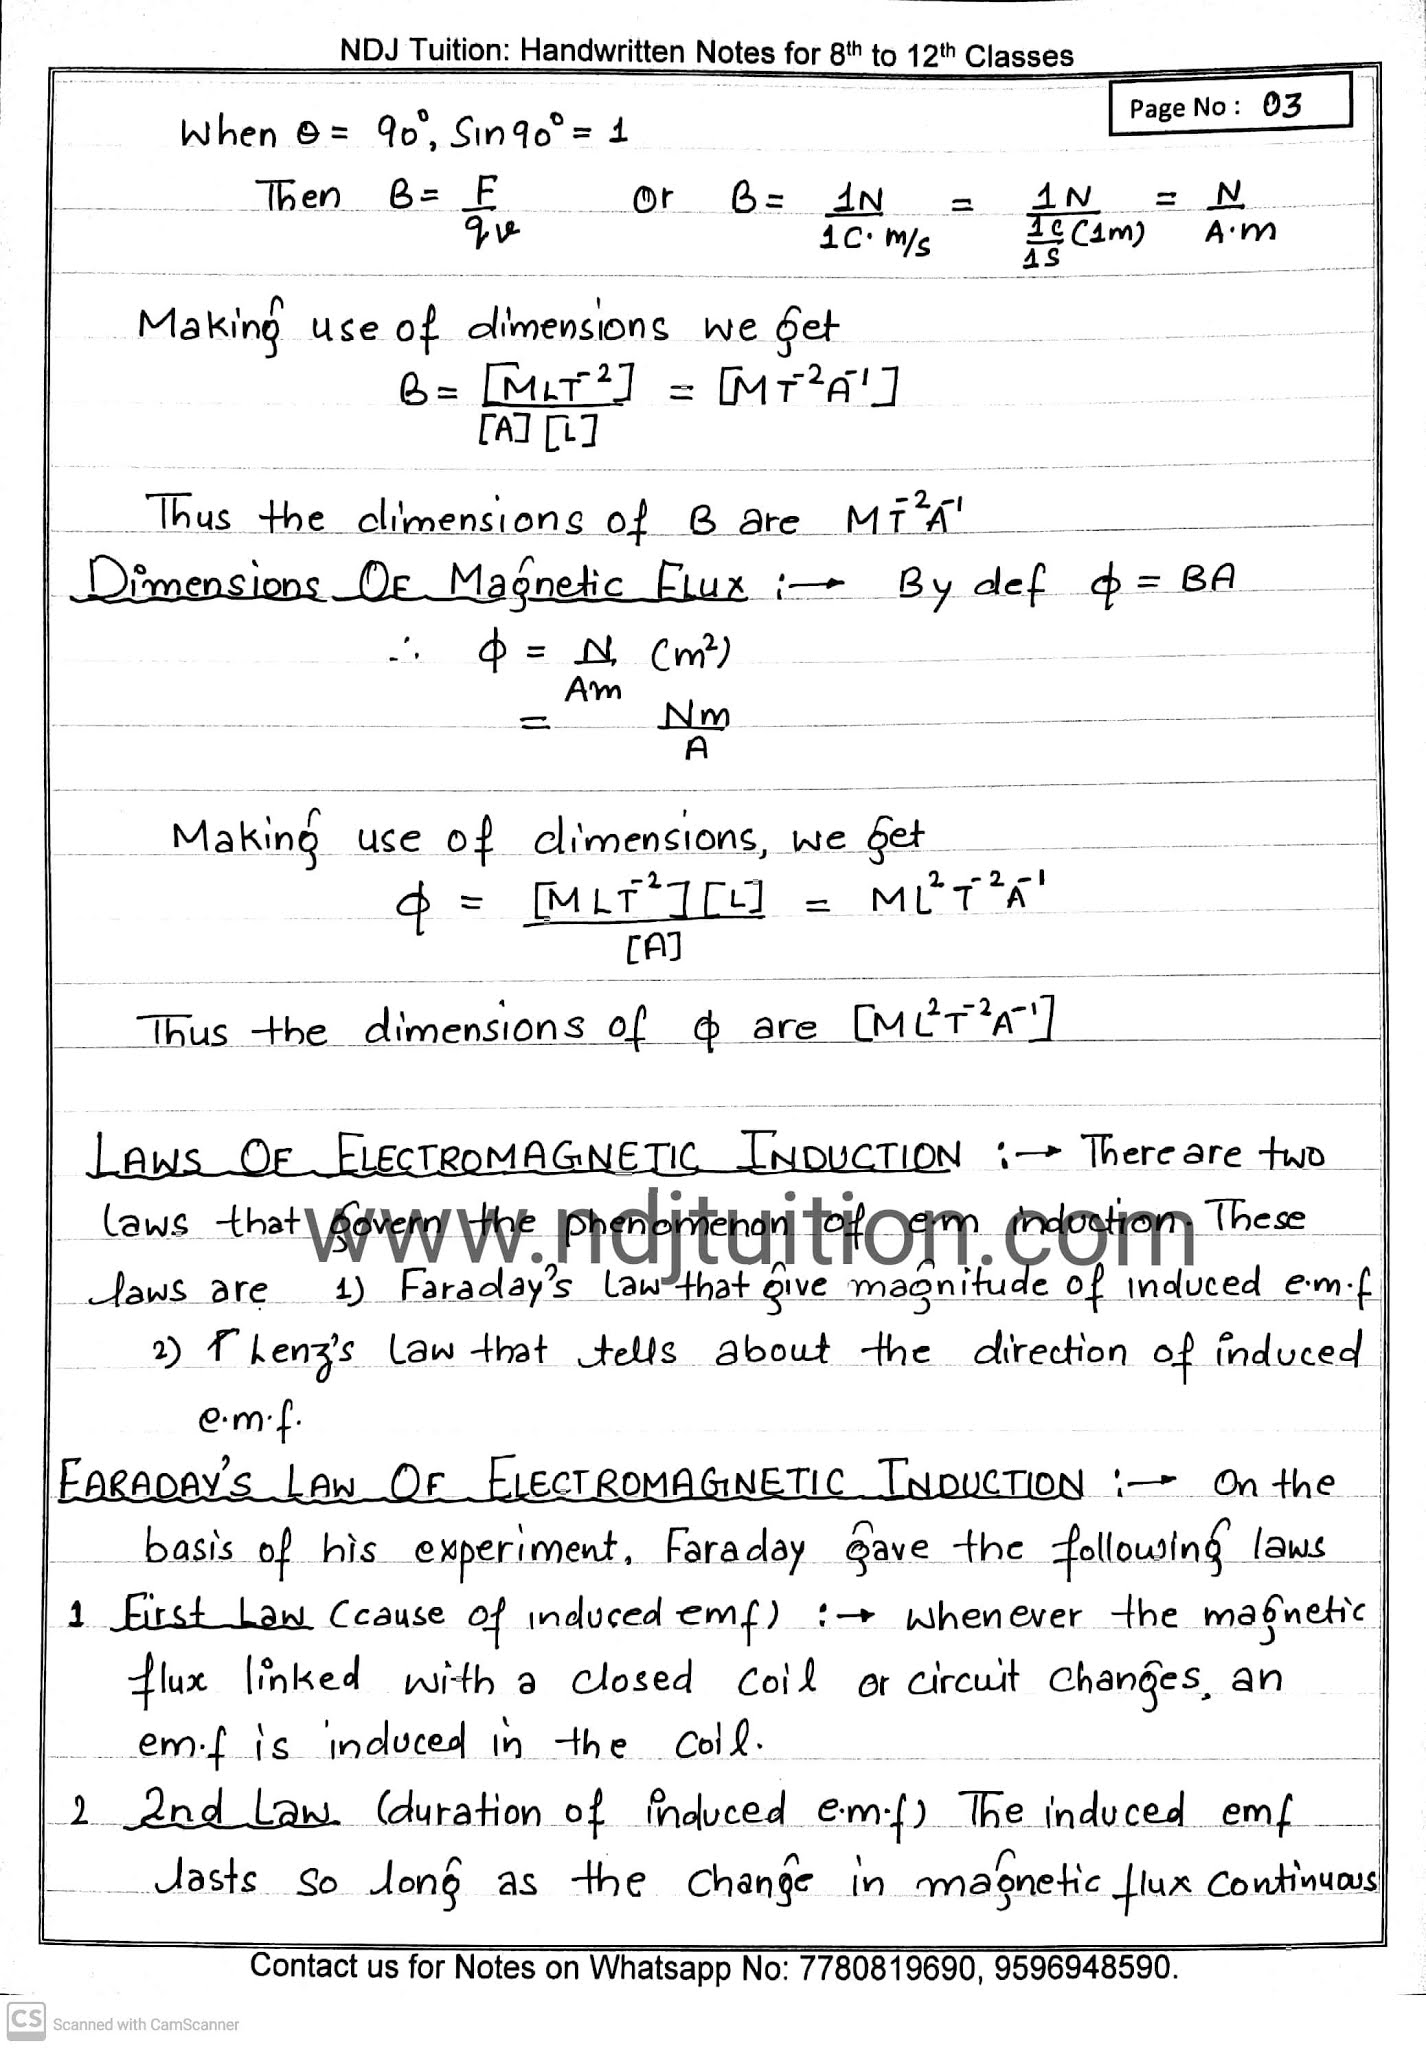 NDJ Tuition: Handwritten Notes for 8th to 12th Classes
Page No : 03
When θ = 90°, Sin90° = 1
Then B = F/qv or B = 1N/1C· m/s = 1N/(1C/1S (1m)) = N/A·m
Making use of dimensions we get
B = [MLT⁻²]/[A][L] = [MT⁻²A⁻¹]
Thus the dimensions of B are MT⁻²A⁻¹
Dimensions OF Magnetic Flux :→ By def ϕ = BA
∴ ϕ = N/Am (m²)
= Nm/A
Making use of dimensions, we get
ϕ = [MLT⁻²][L]/[A] = ML²T⁻²A⁻¹
Thus the dimensions of ϕ are [ML²T⁻²A⁻¹]
LAWS OF ELECTROMAGNETIC INDUCTION :→ There are two
laws that govern the phenomenon of em induction. These
www.ndjtuition.com
laws are 1) Faraday's law that give magnitude of induced e.m.f
2) Lenz's law that tells about the direction of induced
e.m.f.
FARADAY'S LAW OF ELECTROMAGNETIC INDUCTION :→ On the
basis of his experiment, Faraday gave the following laws
1 First Law (cause of induced emf) :→ whenever the magnetic
flux linked with a closed coil or circuit changes, an
em.f is induced in the coil.
2 2nd Law (duration of induced e.m.f) The induced emf
lasts so long as the change in magnetic flux continuous
Contact us for Notes on Whatsapp No: 7780819690, 9596948590.
CS Scanned with CamScanner